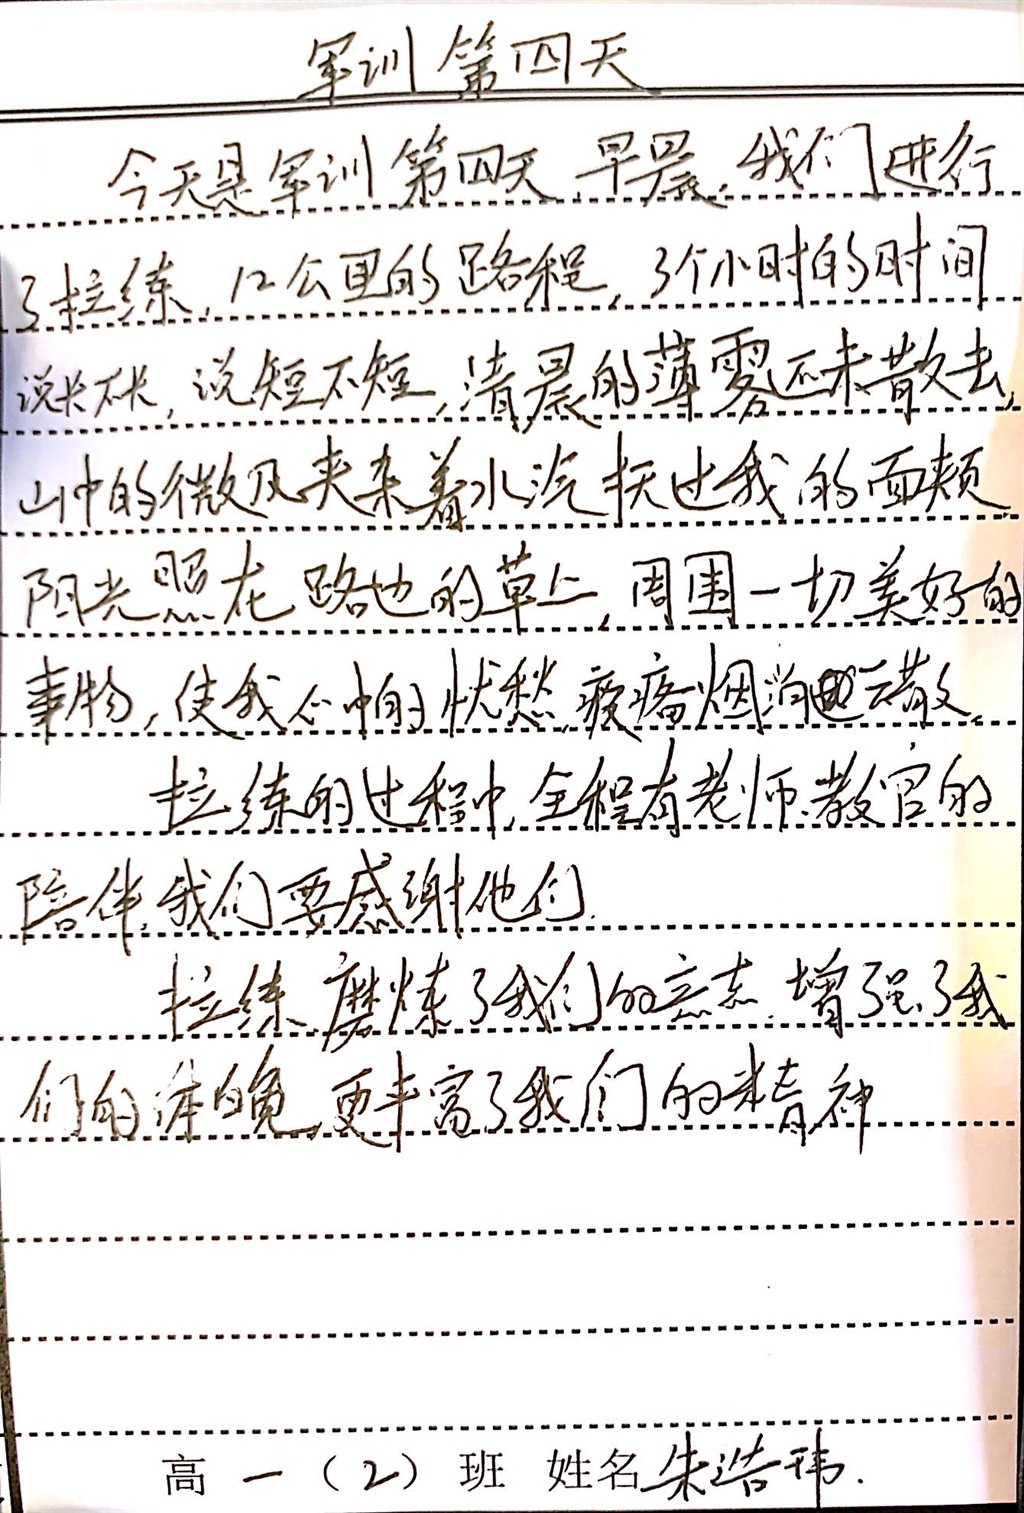 军训第四天
今天是军训第四天,早晨,我们进行
了拉练,12公里的路程,3个小时的时间
说长不长,说短不短,清晨的薄雾还未散去,
山中的微风夹杂着水汽抚过我的面颊,
阳光照在路边的草上,周围一切美好的
事物,使我心中的忧愁,疲惫烟消云散。
拉练的过程中,全程有老师、教官的
陪伴,我们要感谢他们.
拉练磨炼了我们的意志,增强了我
们的体魄,更丰富了我们的精神
高一(2)班 姓名 朱浩玮.